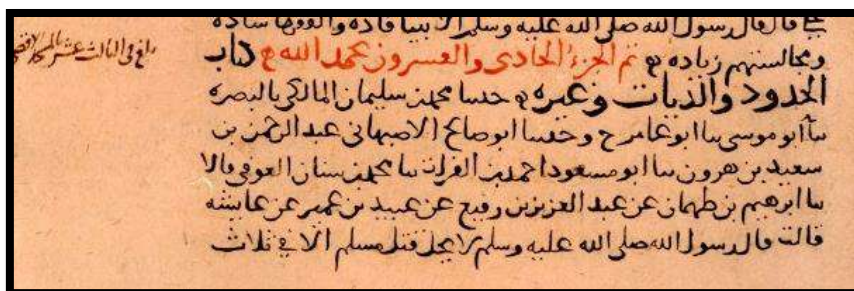 قال قال رسول الله صلى الله عليه وسلم الانبيا قاده والفقها ساده
ومجالستهم زياده ه تم الجزء الحادى والعشرون بحمد الله ه كتاب
بلغ فى الثالث عشر
الحدود والديات وغيره ه حدثنا محمد بن سليمان المالكى بالبصره
نا ابو موسى نا ابو عامر ح وحدثنا ابو صالح الاصبهانى عبد الرحمن بن
سعيد بن هرون نا ابو مسعود احمد بن الفرات نا محمد بن سنان العوفى قالا
نا ابرهيم بن طهمان عن عبد العزيز بن رفيع عن عبيد بن عمير عن عايشه
قالت قال رسول الله صلى الله عليه وسلم لا يحل قتل مسلم الا فى ثلاث